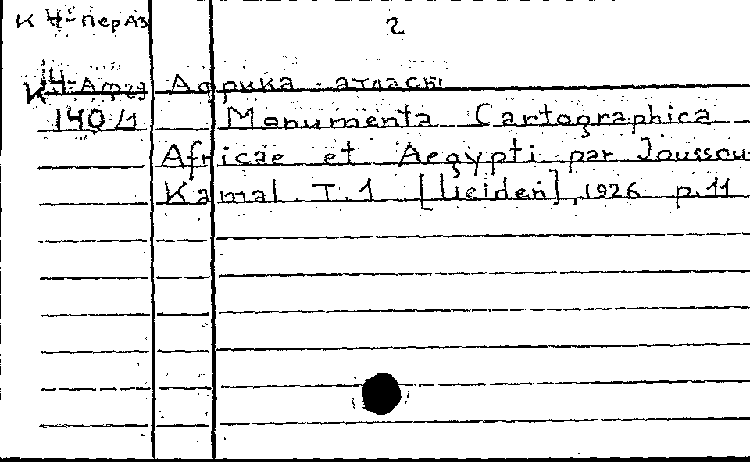 К Ч-Пераз 2
К Ч-Афр Африка - атласы
140/1 Monumenta Cartographica
Africae et Aegypti par Joussou
Kamal T.1 [Leiden], 1926 p.11